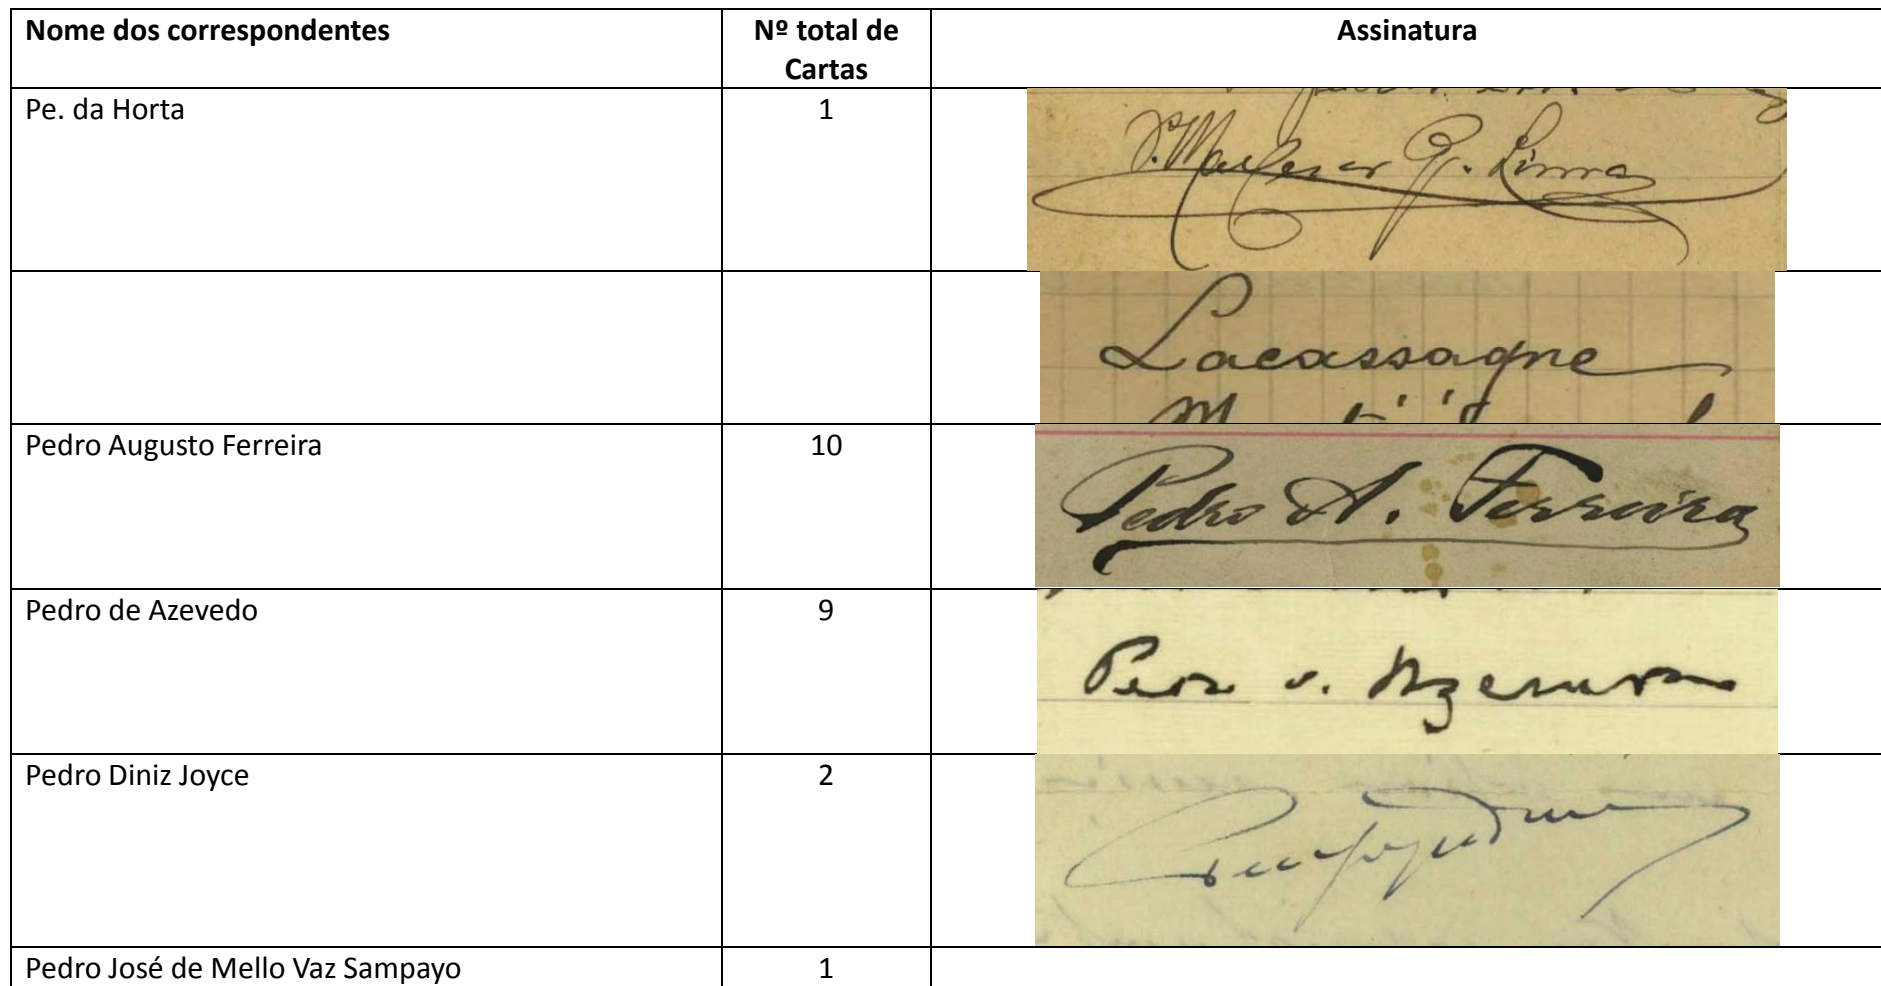 Nome dos correspondentes
Nº total de
Cartas
Assinatura
Pe. da Horta
1
Lima
Lacassagne
Pedro Augusto Ferreira
10
Pedro A. Ferreira
Pedro de Azevedo
9
Pedro d. Azevedo
Pedro Diniz Joyce
2
Pedro José de Mello Vaz Sampayo
1